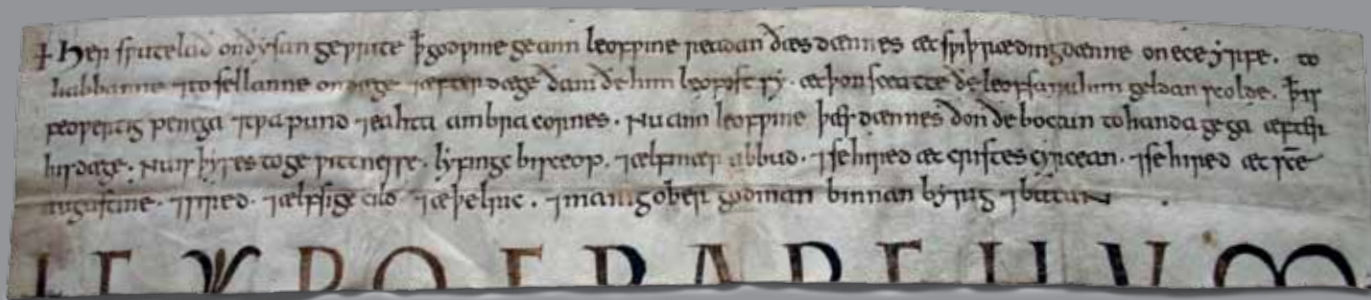 + Her sƿutelað on ðysan geƿrite ꝥ godƿine geann leofƿine readan ðæs dænnes æt sƿiþrædingdænne on ece yrfe. to
habbanne ⁊ to sellanne on dæge ⁊ æfter dæge ðam ðe him leofost sy. æt þon sceatte ðe leofsunu him geldan scolde. ꝥ is
feoƿertig penega ⁊ tƿa pund ⁊ eahta ambra cornes. Nu ann leofƿine þæs dænnes ðon ðe boctun to handa gega æfter
his dæge. Nu is þyses to geƿittnesse. lyfingc bisceop. ⁊ ælfmær abbud. ⁊ se hired æt cristes cyrcean. ⁊ se hired æt sc̄e
augustine. ⁊ sired. ⁊ ælfsige cild ⁊ æþelric. ⁊ manig oþer godman binnan byrig ⁊ butan